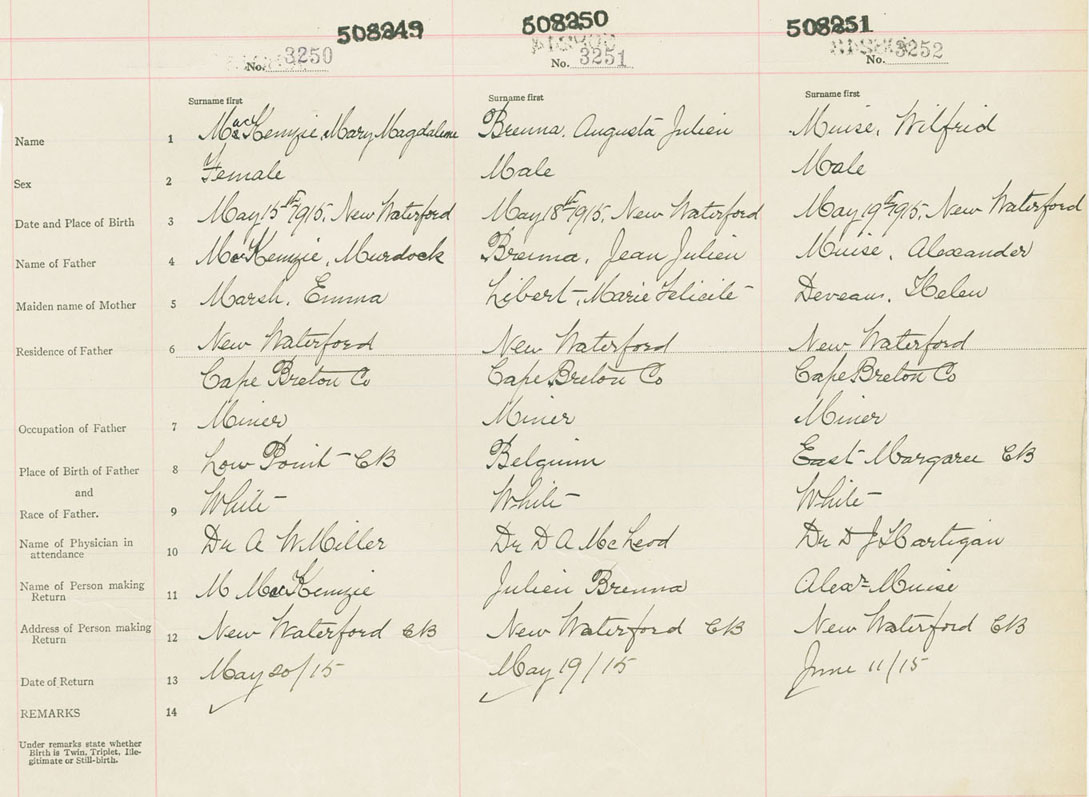 508249 508250 508251
No. 3250 No. 3251 No. 3252
Surname first Surname first Surname first
Name 1 MacKenzie, Mary Magdalene Brenna, Augusta Julien Muise, Wilfrid
Sex 2 Female Male Male
Date and Place of Birth 3 May 15th 1915, New Waterford May 18th 1915, New Waterford May 19th 1915, New Waterford
Name of Father 4 MacKenzie, Murdock Brenna, Jean Julien Muise, Alexander
Maiden name of Mother 5 Marsh, Emma Libert, Marie Felicite Deveaux, Helen
Residence of Father 6 New Waterford New Waterford New Waterford
Cape Breton Co Cape Breton Co Cape Breton Co
Occupation of Father 7 Miner Miner Miner
Place of Birth of Father 8 Low Point CB Belgium East Margaree CB
and
Race of Father. 9 White White White
Name of Physician in
attendance 10 Dr A W Miller Dr D A McLeod Dr D J Hartigan
Name of Person making
Return 11 M MacKenzie Julien Brenna Alexr Muise
Address of Person making
Return 12 New Waterford CB New Waterford CB New Waterford CB
Date of Return 13 May 20/15 May 19/15 June 11/15
REMARKS 14
Under remarks state whether
Birth is Twin, Triplet, Ille-
gitimate or Still-birth.